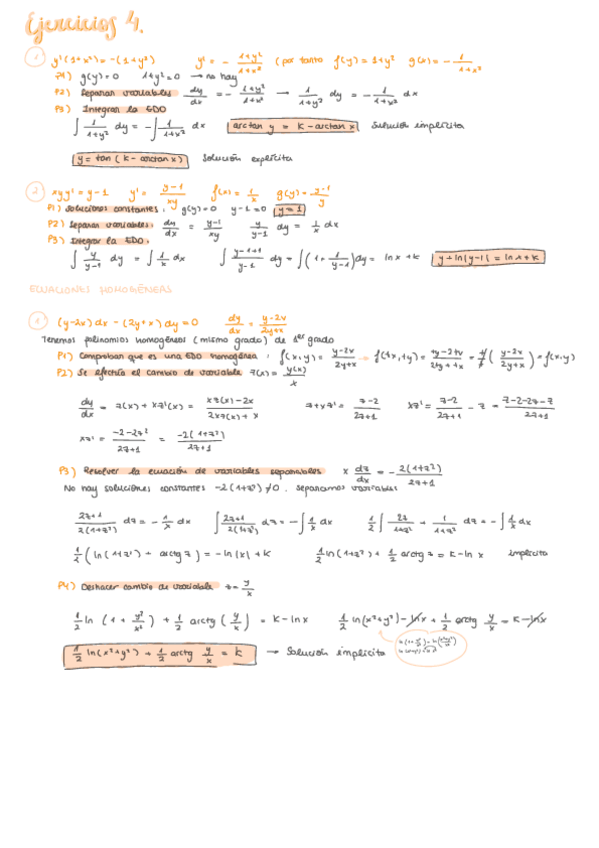 Ejercicios 4.
1 y'(1+x²) = -(1+y²) y' = - (1+y²)/(1+x²) (por tanto f(y) = 1+y² g(x) = - 1/(1+x²)
P1) g(y)=0 1+y²=0 → no hay
P2) Separar variables dy/dx = - (1+y²)/(1+x²) → 1/(1+y²) dy = - 1/(1+x²) dx
P3) Integrar la EDO
∫ 1/(1+y²) dy = - ∫ 1/(1+x²) dx arctan y = K - arctan x Solución implícita
y = tan (K - arctan x) Solución explícita
2 xyy' = y-1 y' = (y-1)/(xy) f(x) = 1/x g(y) = (y-1)/y
P1) Soluciones constantes: g(y)=0 y-1=0 y=1
P2) Separar variables: dy/dx = (y-1)/(xy) y/(y-1) dy = 1/x dx
P3) Integrar la EDO:
∫ y/(y-1) dy = ∫ 1/x dx ∫ (y-1+1)/(y-1) dy = ∫ (1+ 1/(y-1)) dy = ln x + K y + ln|y-1| = ln x + K
ECUACIONES HOMOGÉNEAS
1 (y-2x) dx - (2y+x) dy = 0 dy/dx = (y-2x)/(2y+x)
Tenemos polinomios homogéneos (mismo grado) de 1er grado
P1) Comprobar que es una EDO homogénea: f(x,y) = (y-2x)/(2y+x) → f(tx,ty) = (ty-2tx)/(2ty+tx) = t/t ( (y-2x)/(2y+x) ) = f(x,y)
P2) Se efectúa el cambio de variable z(x) = y(x)/x
dy/dx = z(x) + xz'(x) = (xz(x)-2x)/(2xz(x)+x) z+xz' = (z-2)/(2z+1) xz' = (z-2)/(2z+1) - z = (z-2-2z-z)/(2z+1)
xz' = (-2-2z²)/(2z+1) = -2(1+z²)/(2z+1)
P3) Resolver la ecuación de variables separables x dz/dx = - 2(1+z²)/(2z+1)
No hay soluciones constantes -2(1+z²)≠0. separamos variables
(2z+1)/(2(1+z²)) dz = - 1/x dx ∫ (2z+1)/(2(1+z²)) dz = - ∫ 1/x dx 1/2 ∫ 2z/(1+z²) + 1/(1+z²) dz = - ∫ 1/x dx
1/2 (ln(1+z²) + arctg z) = -ln|x| + K 1/2 ln(1+z²) + 1/2 arctg z = K - ln x implícita
P4) Deshacer cambio de variable z = y/x
1/2 ln (1 + y²/x²) + 1/2 arctg (y/x) = K - ln x 1/2 ln(x²+y²) - ln x + 1/2 arctg y/x = K - ln x
1/2 ln(x²+y²) + 1/2 arctg y/x = K → Solución implícita